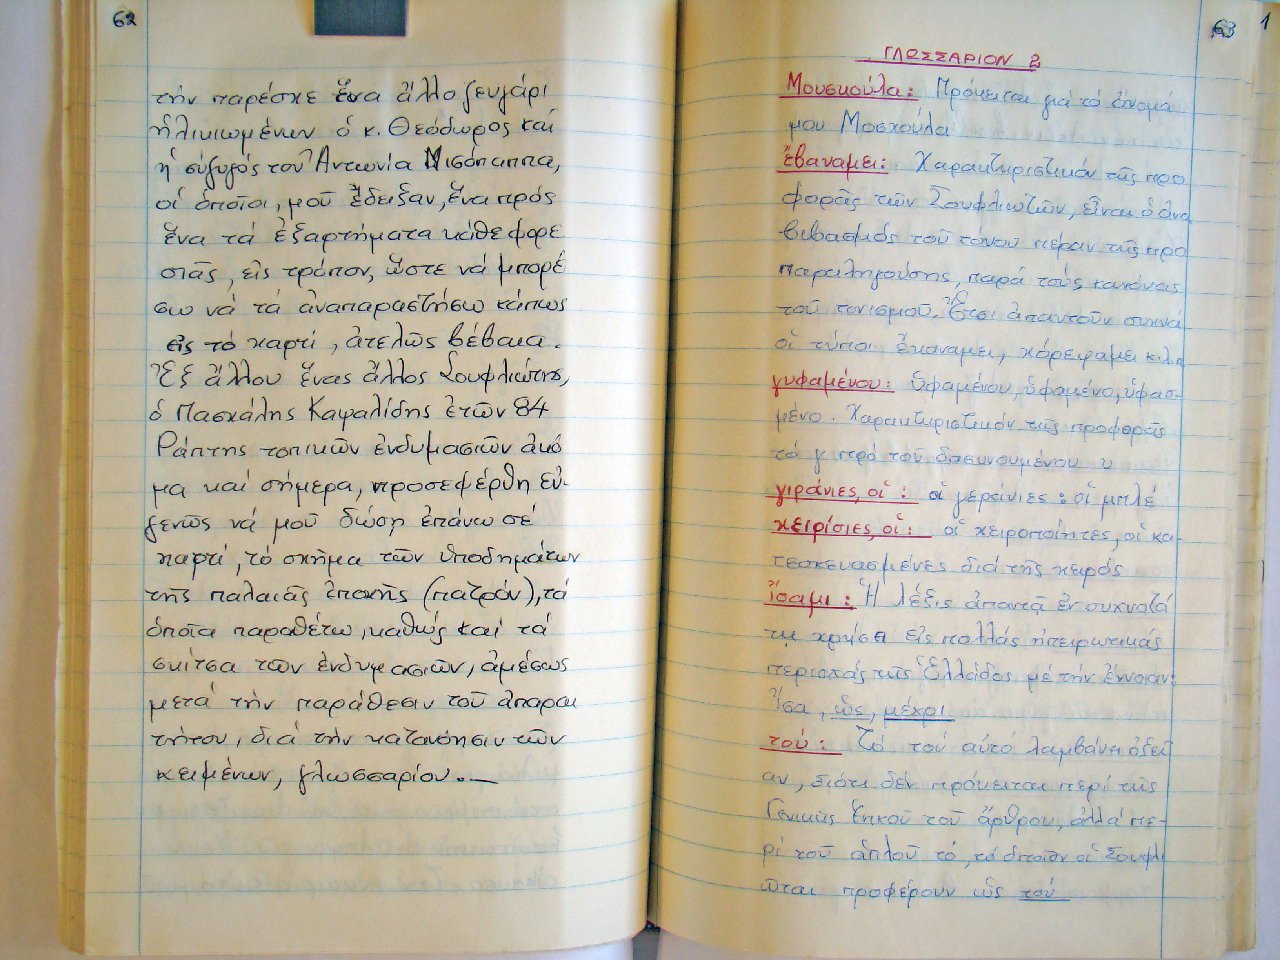 62
τήν παρέσχε ἕνα ἄλλο ζευγάρι
ἡλικιωμένων ὁ κ. Θεόδωρος καί
ἡ σύζυγός του Ἀντωνία Μισόπαππα,
οἱ ὁποῖοι, μοῦ ἔδειξαν, ἕνα πρός
ἕνα τά ἐξαρτήματα κάθε φορε
σιᾶς, εἰς τρόπον, ὥστε νά μπορέ
σω νά τά ἀναπαραστήσω κάπως
εἰς τό χαρτί, ἀτελῶς βέβαια.
Ἐξ ἄλλου ἕνας ἄλλος Σουφλιώτης,
ὁ Πασχάλης Καψαλίδης ἐτῶν 84
Ράπτης τοπικῶν ἐνδυμασιῶν ἀκό
μα καί σήμερα, προσεφέρθη εὐ-
γενῶς νά μοῦ δώση ἐπάνω σέ
χαρτί, τό σχῆμα τῶν ὑποδημάτων
τῆς παλαιᾶς ἐποχῆς (πατρόν), τά
ὁποῖα παραθέτω, καθώς καί τά
σκίτσα τῶν ἐνδυμασιῶν, ἀμέσως
μετά τήν παράθεσιν τοῦ ἀπαραι
τήτου, διά τήν κατανόησιν τῶν
κειμένων, γλωσσαρίου.—
63 1
ΓΛΩΣΣΑΡΙΟΝ 2
Μουσκούλα: Πρόκειται γιά τό ὄνομά
μου Μοσχούλα
ἔβαναμει: Χαρακτηριστικόν τῆς προ
φορᾶς τῶν Σουφλιωτῶν, εἶναι ὁ ἀνα
βιβασμός τοῦ τόνου πέραν τῆς προ
παραληγούσης, παρά τούς κανόνας
τοῦ τονισμοῦ. Ἔτσι ἀπαντοῦν συχνά
οἱ τύποι ἔκαναμει, χόρεψαμει κ.λπ
γυφαμένου: ὑφαμένου, ὑφαμένο, ὑφασ-
μένο. Χαρακτηριστικόν τῆς προφορᾶς
τό γ πρό τοῦ δασυνουμένου υ
γιράνιες, οἱ: οἱ γεράνιες: οἱ μπλέ
χειρίσιες, οἱ: οἱ χειροποίητες, οἱ κα-
τεσκευασμένες διά τῆς χειρός
ἴσαμι: Ἡ λέξις ἀπαντᾷ ἐν συχνοτά
τῃ χρήσει εἰς πολλάς ἠπειρωτικάς
περιοχάς τῆς Ἑλλάδος μέ τήν ἔννοιαν:
Ἴσα, ὥς, μέχρι
τού: Τό τού αὐτό λαμβάνει ὀξεῖ
αν, διότι δέν πρόκειται περί τῆς
Γενικῆς ἑνικοῦ τοῦ ἄρθρου, ἀλλά πε-
ρί τοῦ ἁπλοῦ τό, τό ὁποῖον οἱ Σουφλι
ῶται προφέρουν ὡς τού